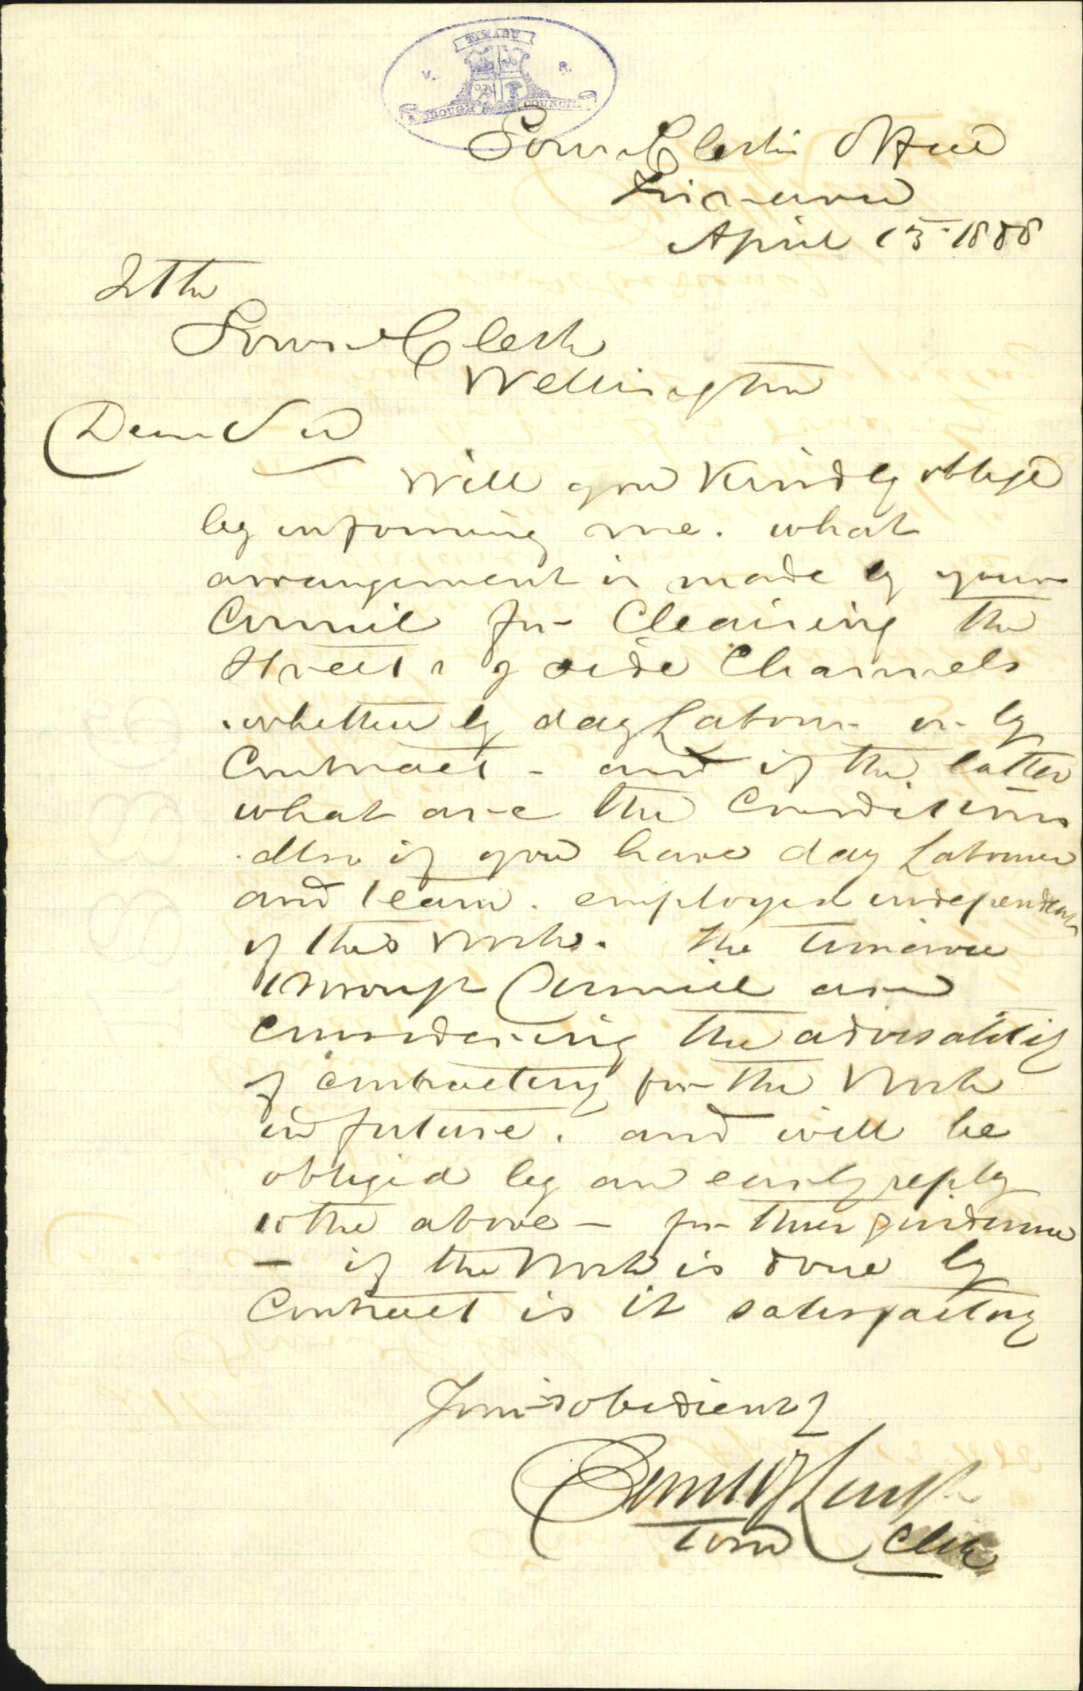 TIMARU
V. R.
BOROUGH COUNCIL
Town Clerk's Office
Timaru
April 13th 1888
To the
Town Clerk
Wellington
Dear Sir
Will you kindly oblige
by informing me. what
arrangement is made by your
Council for Cleaning the
Streets & side Channels
whether by day Labour or by
Contract - and if the latter
what are the Conditions
Also if you have day Labourer
and team. employed independent
of this work. The Timaru
Borough Council are
Considering the advisability
of contracting for the Work
in future. and will be
obliged by an early reply
to the above - for their guidance
- if the Work is done by
Contract is it satisfactory
Yours obediently
Town Clerk